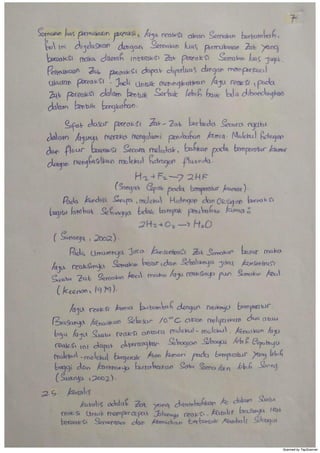 7
Semakin luas permukaan pereaksi, laju reaksi akan Semakin bertambah.
hal ini dijelaskan dengan Semakin luas permukaan Zat yang
bereaksi maka daerah interaksi Zat pereaksi Semakin luas juga.
Permukaan Zat pereaksi dapat diperluas dengan memperkecil
ukuran pereaksi. Jadi untuk meningkatkan laju reaksi, pada
Zat pereaksi dalam bentuk Serbuk lebih baik bila dibandingkan
dalam bentuk bongkahan.
Sifat dasar pereaksi Zat - Zat berbeda Secara nyata
dalam lajunya mereka mengalami perubahan kimia. Molekul hidrogen
dan flour bereaksi Secara meledak, bahkan pada temperatur kamar
dengan menghasilkan molekul hidrogen fluorida.
H2 + F2 → 2HF
(Sangat Cepat pada temperatur kamar).
Pada kondisi Serupa, molekul Hidrogen dan Oksigen bereaksi
begitu lambat Sehingga tidak tampak perubahan kimia :
2H2 + O2 → H2O
( Sunarya, 2002).
Pada Umumnya Jika konsentrasi Zat Semakin besar maka
laju reaksinya Semakin besar, dan Sebaliknya jika konsentrasi
Suatu Zat Semakin kecil maka laju reaksinya pun Semakin kecil
( Keenan, 1979).
Laju reaksi kimia bertambah dengan naiknya temperatur.
Biasanya kenaikan Sebesar 10°C akan melipatkan dua atau
tiga laju Suatu reaksi antara molekul - molekul. Kenaikan laju
reaksi ini dapat diterangkan Sebagian Sebagai lebih cepatnya
molekul - molekul bergerak kian kemari pada temperatur yang lebih
tinggi dan karenanya bertabrakan Satu Sama lain lebih Sering
( Sunarya, 2002).
2.5. Katalis
Katalis adalah Zat yang ditambahkan ke dalam Suatu
reaksi Untuk mempercepat Jalannya reaksi. Katalis biasanya ikut
bereaksi Sementara dan kemudian terbentuk Kembali Sebagai
Scanned by TapScanner